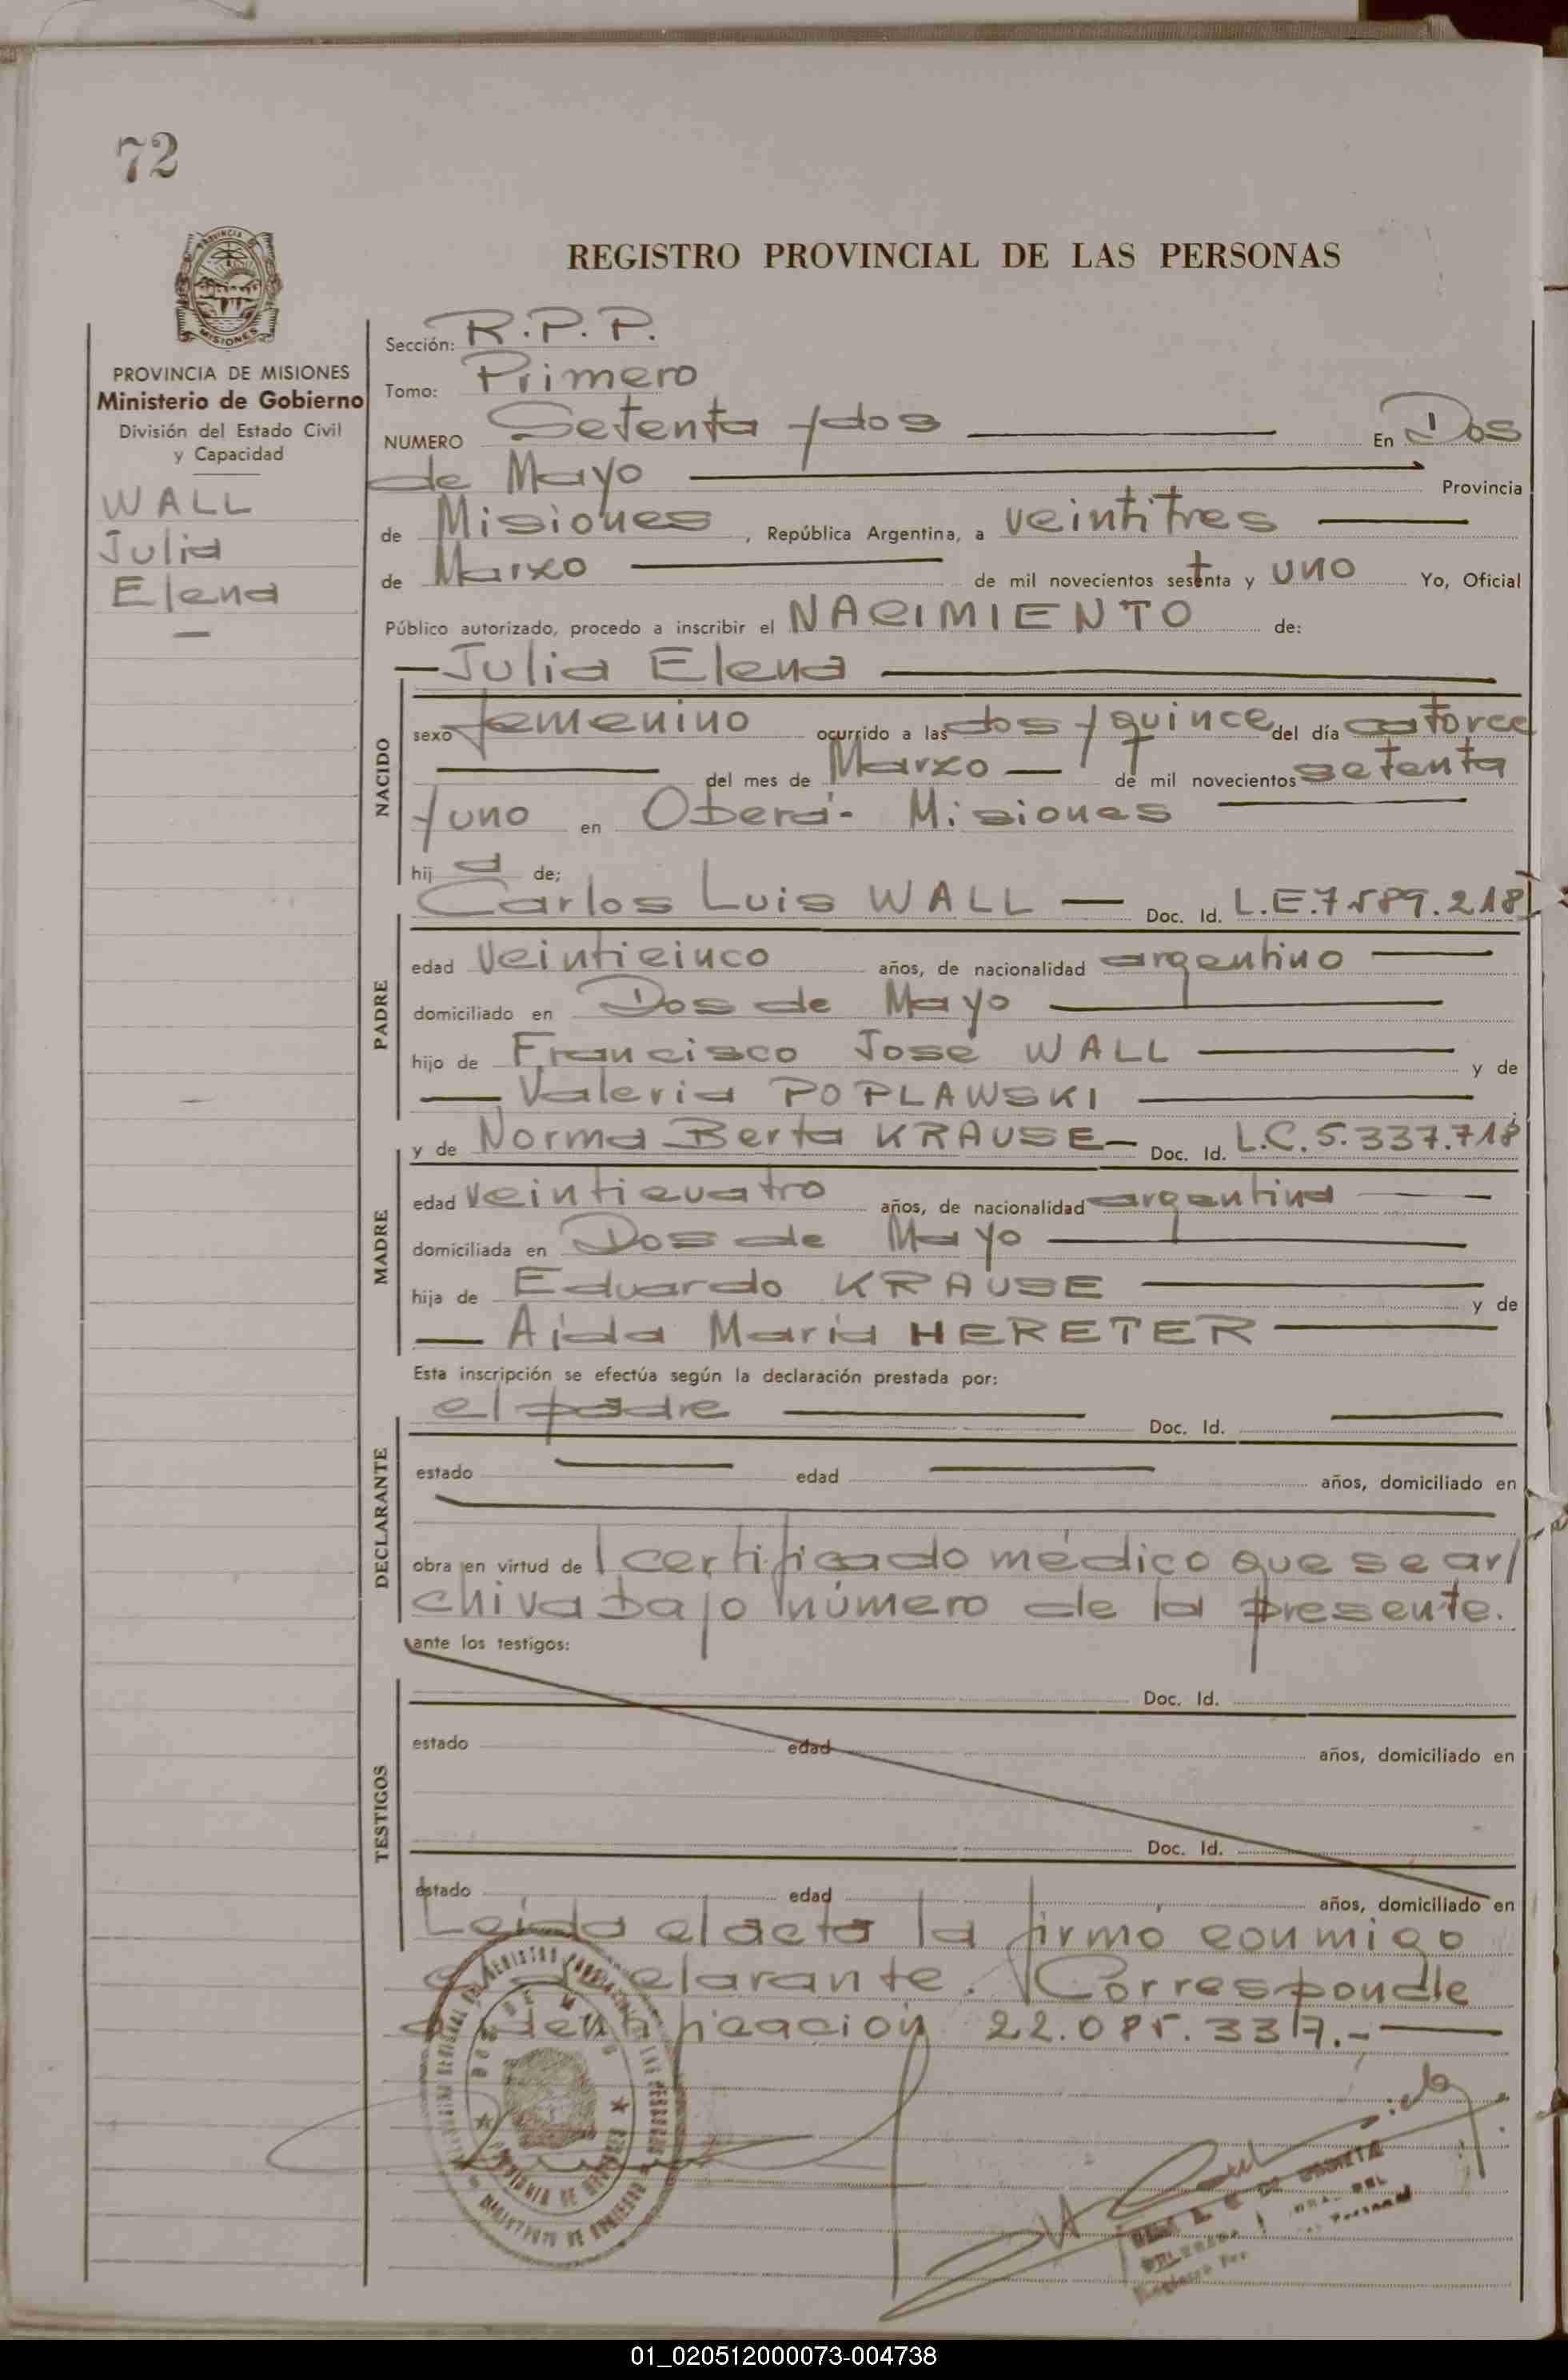 72
REGISTRO PROVINCIAL DE LAS PERSONAS
PROVINCIA DE MISIONES
Ministerio de Gobierno
División del Estado Civil
y Capacidad
WALL
Julia
Elena
Sección: R.P.P.
Tomo: Primero
NUMERO Setenta y dos En Dos
de Mayo Provincia
de Misiones, República Argentina, a veintitres
de Marzo de mil novecientos setenta y uno Yo, Oficial
Público autorizado, procedo a inscribir el NACIMIENTO de:
Julia Elena
NACIDO
sexo femenino ocurrido a las dos y quince del día catorce
del mes de Marzo de mil novecientos setenta
y uno en Oberá- Misiones
hij a de;
Carlos Luis WALL Doc. Id. L.E.7.589.218
PADRE
edad veinticinco años, de nacionalidad argentino
domiciliado en Dos de Mayo
hijo de Francisco José WALL y de
Valeria POPLAWSKI
y de Norma Berta KRAUSE Doc. Id. L.C.5.337.718
MADRE
edad veinticuatro años, de nacionalidad argentina
domiciliada en Dos de Mayo
hija de Eduardo KRAUSE y de
Aida Maria HERETER
Esta inscripción se efectúa según la declaración prestada por:
el padre Doc. Id.
DECLARANTE
estado edad años, domiciliado en
obra en virtud de l certificado médico que se ar/
chiva bajo número de la presente.
ante los testigos:
Doc. Id.
TESTIGOS
estado edad años, domiciliado en
Doc. Id.
estado edad años, domiciliado en
Leida el acta la firmó conmigo
el declarante. Corresponde
identificación 22.085.337.-
01_020512000073-004738